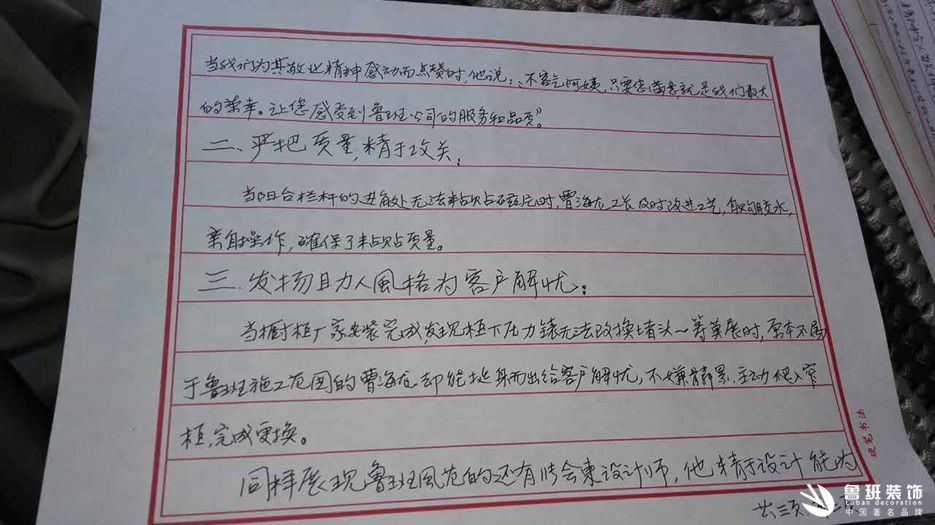 当我们为其敬业精神感动而点赞时,他说:“不客气阿姨,只要您满意,就是我们最大
的荣幸。让您感受到鲁班公司的服务和品质”。
二、严把质量,精于攻关:
当阳台栏杆的进角处无法粘贴磁片时,曹海龙工长及时改进工艺,自购胶水,
亲自操作,确保了粘贴质量。
三、发扬助人風格为客户解忧:
当橱柜厂家安装完成,发现柜下压力錶无法改换堵头一筹莫展时,原本不属
于鲁班施工范围的曹海龙却能挺身而出给客户解忧,不嫌髒累,主动爬入窄
柜,完成更换。
同样展现鲁班風范的还有 会東设计师,他精于设计能为
共三页
硬笔书法
鲁班装饰
luban decoration
中国著名品牌